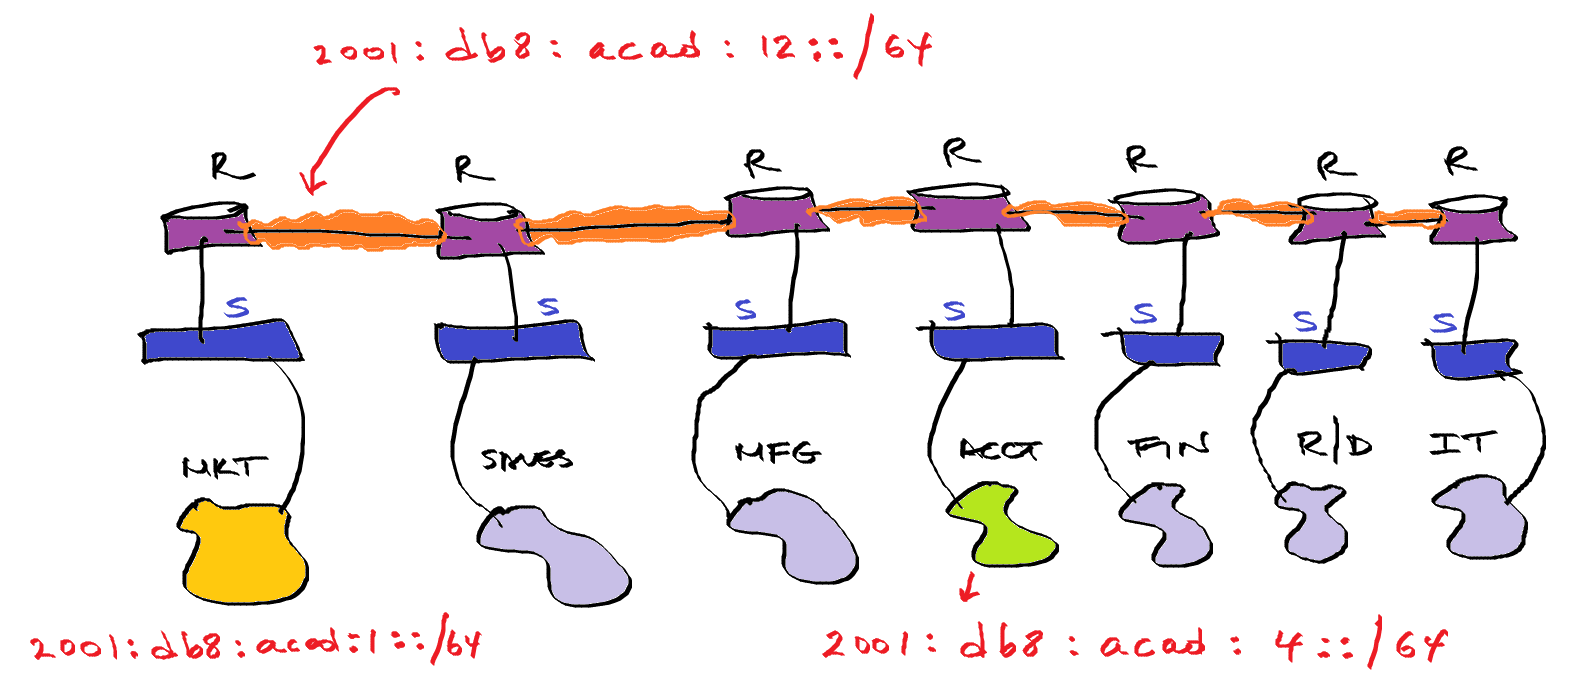 2001:db8:acad:12::/64
R R R R R R R
S S S S S S S
MKT SALES MFG ACCT FIN R/D IT
2001:db8:acad:1::/64 2001:db8:acad:4::/64